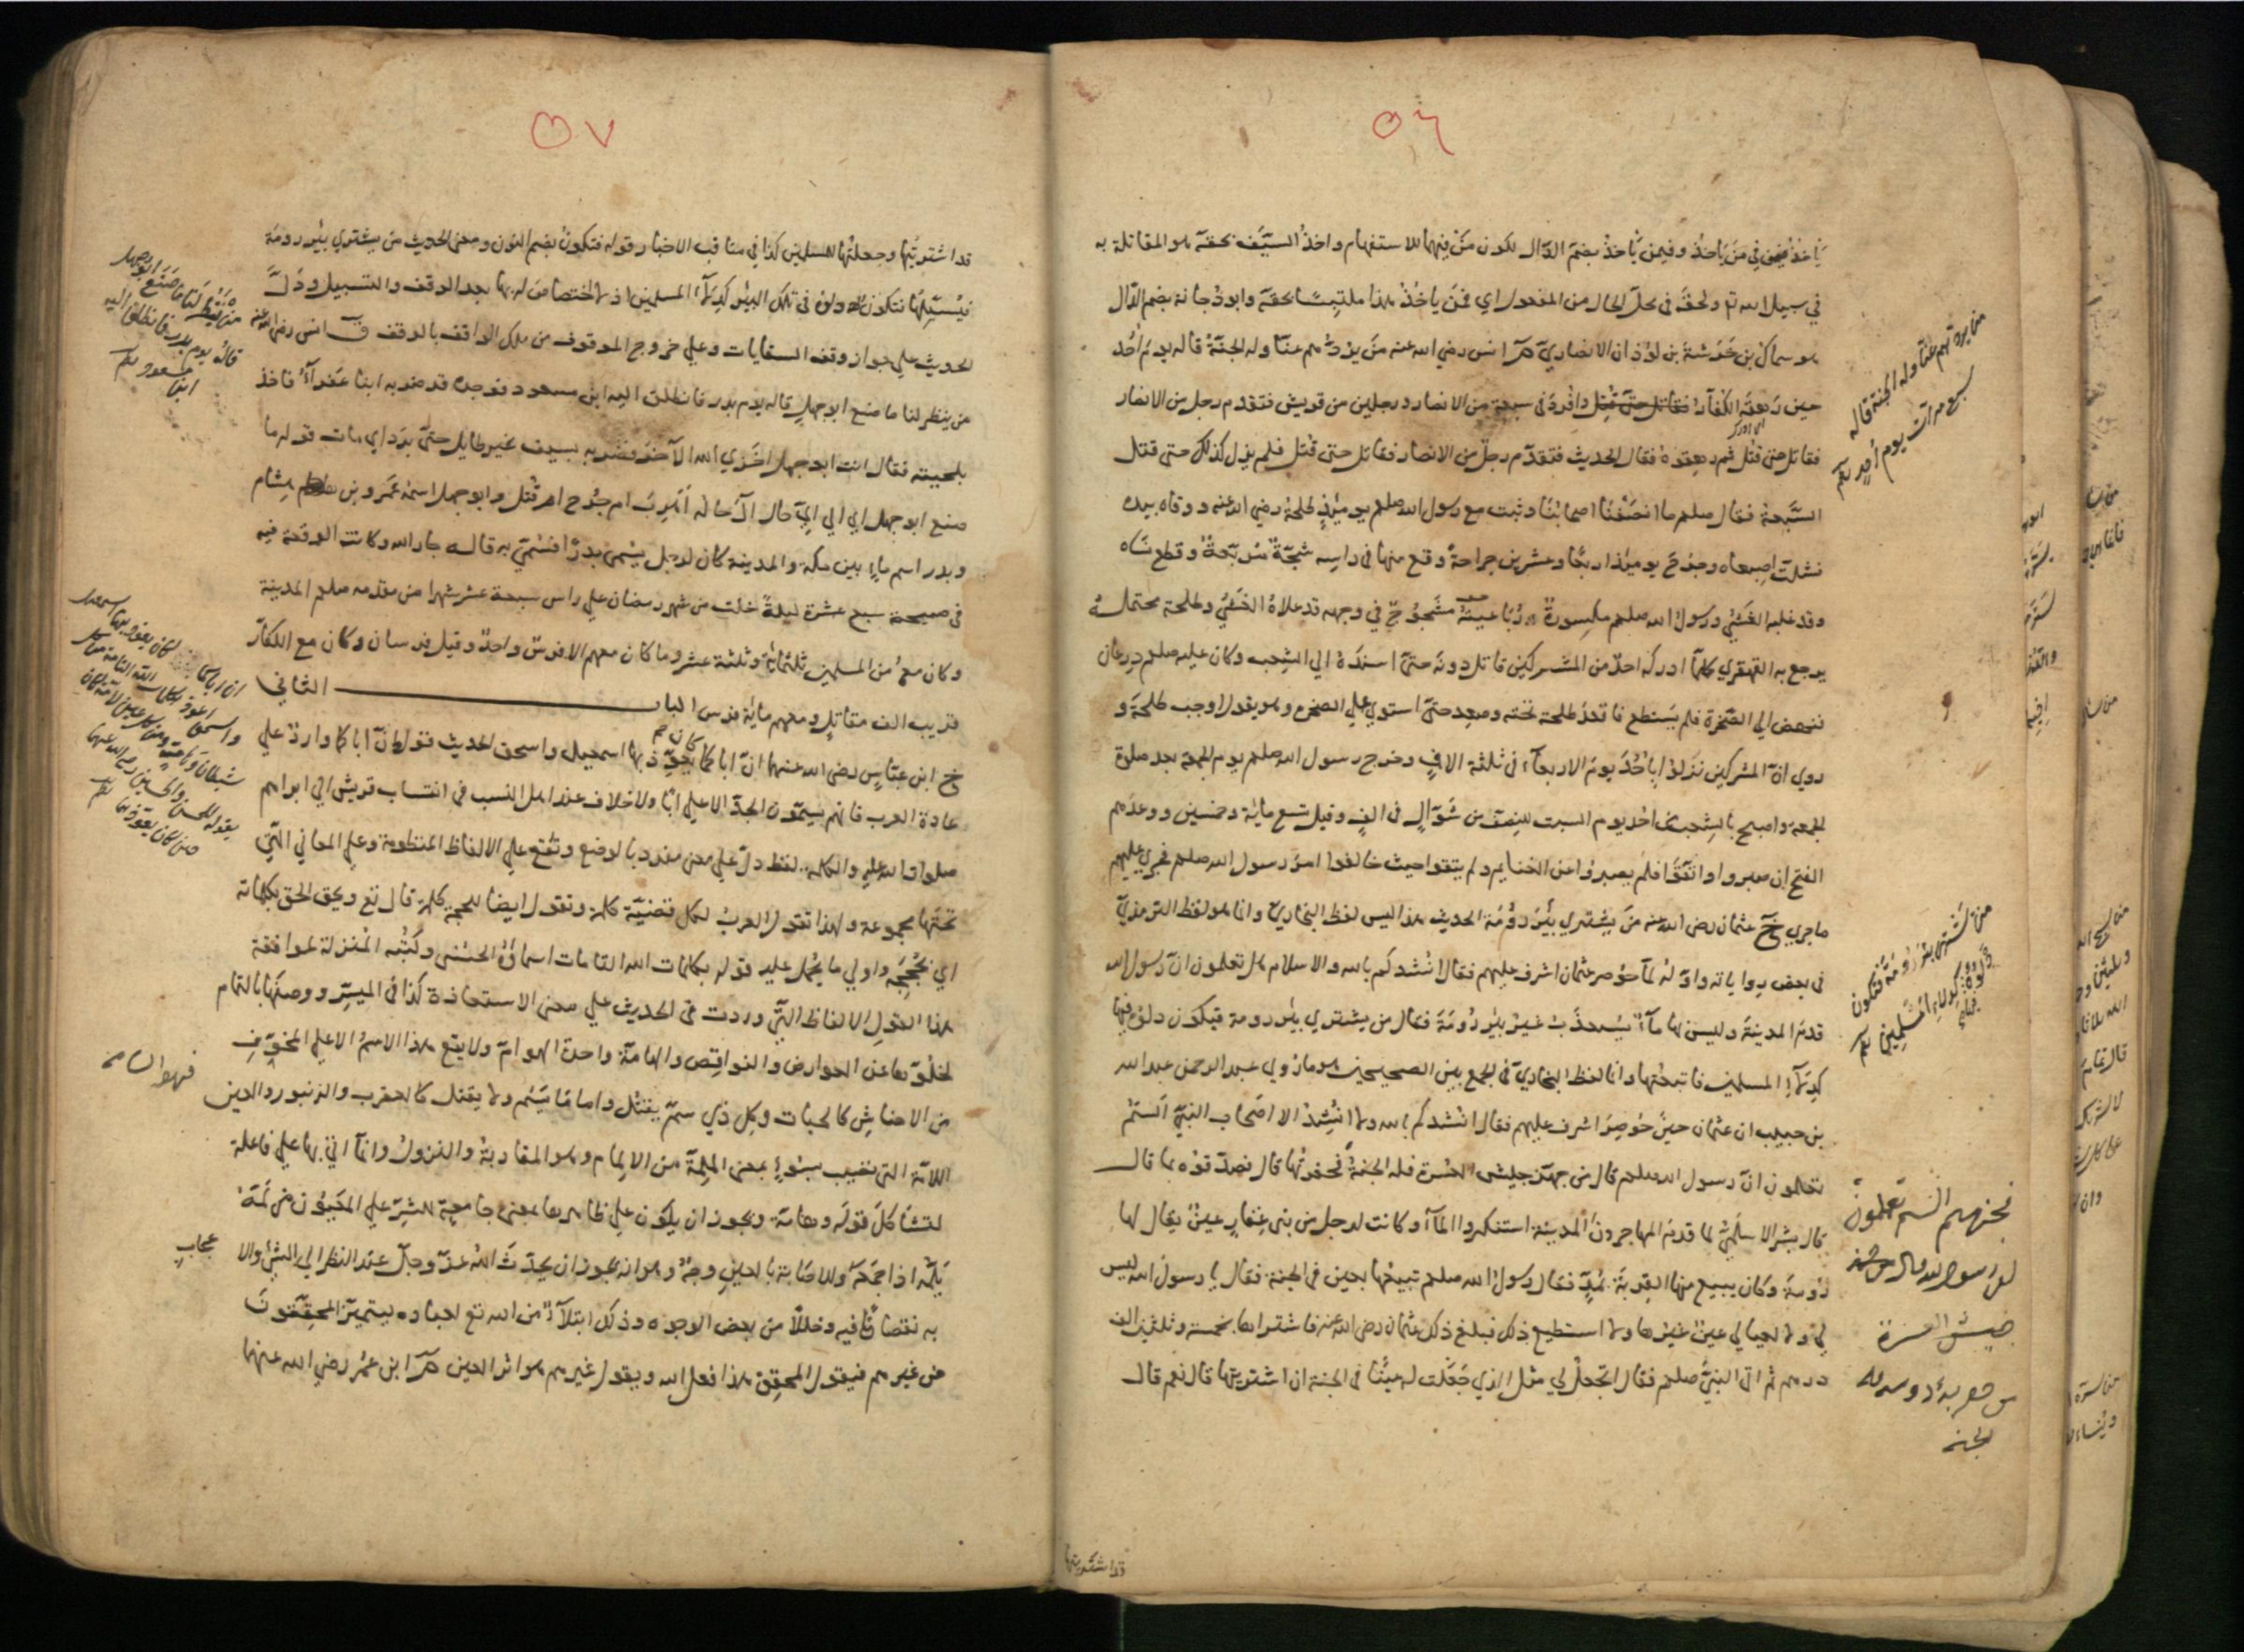 ٥٦
يأخذ فمن في من يأخذ وفيمن يأخذ بضم الذال لكون من فيهما للاستفهام واخذ السيف بحقه هو المقاتلة به
في سبيل الله تع ولحقه في محل الحال من المفعول اي فمن يأخذ هذا ملتبسا بحقه وابو دجانة بضم الدال
هو سماك بن خرشة بن لوذان الانصاري م انس رضي الله عنه من يردهم عنا وله الجنة قاله يوم احد
حين رهقه الكفار وافرد في سبعة من الانصار ورجلين من قريش فتقدم رجل من الانصار
فقاتل حتى قتل ثم رهقوه فقال الحديث فتقدم رجل من الانصار فقاتل حتى قتل فلم يزل كذلك حتى قتل
السبعة فقال صلعم ما انصفنا اصحابنا وثبت مع رسول الله صلعم يومئذ طلحة رضي الله عنه ووقاه بيده
فشلت اصبعاه وجرح يومئذ اربعا وعشرين جراحة وقع منها في راسه شجة مربعة وقطع نساه
وقد غلبه الغشي ورسول الله صلعم مكسورة رباعيته مشجوج في وجهه قد علاه الغشي وطلحة محتمله
يرجع به القهقري كلما ادركه احد من المشركين قاتل دونه حتى اسنده الي الشعب وكان عليه صلعم درعان
فنهض الي الصخرة فلم يستطع فاقعد طلحة تحته وصعد حتى استوي علي الصخرة وهو يقول اوجب طلحة و
روي ان المشركين نزلوا باحد يوم الاربعاء في ثلثة الاف وخرج رسول الله صلعم يوم الجمعة بعد صلوة
الجمعة واصبح بالشعب من احد يوم السبت للنصف من شوال في الف وقيل تسع مائة وخمسين ووعدهم
الفتح ان صبروا واتقوا فلم يصبروا عن الغنايم ولم يتقوا حيث خالفوا امر رسول الله صلعم فجري عليهم
ماجري خ عثمان رضي الله عنه من يشتري بئر رومة الحديث هذا ليس لفظ البخاري وانما هو لفظ الترمذي
في بعض رواياته واوله لما حوصر عثمان اشرف عليهم فقال انشدكم بالله والاسلام هل تعلمون ان رسول الله
قدم المدينة وليس بها ماء يستعذب غير بئر رومة فقال من يشتري بئر رومة فيكون دلوه فيها
كدلاء المسلمين فابتعتها وانما لفظ البخاري في الجمع بين الصحيحين هو ما روي عبد الرحمن عبد الله
بن حبيب ان عثمان حين حوصر اشرف عليهم فقال انشدكم بالله ولا انشد الا اصحاب النبي الستم
تعلمون ان رسول الله صلعم قال من جهز جيش العسرة فله الجنة فجهزتها قال فصدقوه بما قال
قال بشر الاسلمي لما قدم المهاجرون المدينة استنكروا الماء وكانت لرجل من بني غفار عين يقال لها
رومة وكان يبيع منها القربة بمد فقال رسول الله صلعم تبيعها بعين في الجنة فقال يا رسول الله ليس
لي ولا لعيالي عين غيرها ولا استطيع ذلك فبلغ ذلك عثمان رضي الله عنه فاشتراها بخمسة وثلثين الف
درهم ثم اتي النبي صلعم فقال اتجعل لي مثل الذي جعلت له عينا في الجنة ان اشتريتها قال نعم قال
من يردهم عنا وله الجنة قاله
سبع مرات يوم احد
من يشتري بئر رومة فيكون
دلوه فيها كدلاء المسلمين
فجهزهم الستم تعلمون
ان رسول الله قال من جهز
جيش العسرة
من حفر بئر رومة فله
الجنة
قد اشتريتها
٥٧
قد اشتريتها وجعلتها للمسلمين كذا في مناقب الاخيار وقوله فتكون بضم النون ومعني الحديث من يشتري بئر رومة
فيسبلها فتكون دلوه في تلك البئر كدلاء المسلمين اذ لا اختصاص له بها بعد الوقف والتسبيل ودل
الحديث علي جواز وقف السقايات وعلي خروج الموقوف من ملك الواقف بالوقف ق انس رضي الله عنه
من ينظر لنا ما صنع ابو جهل قاله يوم بدر فانطلق اليه ابن مسعود فوجده قد ضربه ابنا عفراء فاخذ
بلحيته فقال انت ابو جهل اخزي الله الآخر فضربه بسيف غير طايل حتى برد اي مات قوله ما
صنع ابو جهل اي الي اي حال آل حاله اهرب ام جرح ام قتل وابو جهل اسمه عمرو بن هشام
وبدر اسم ماء بين مكة والمدينة كان لرجل يسمى بدرا فسمي به قاله جار الله وكانت الوقعة فيه
في صبيحة سبع عشرة ليلة خلت من شهر رمضان علي راس سبعة عشر شهرا من مقدمه صلعم المدينة
وكان معه من المسلمين ثلثمائة وثلثة عشر وما كان معهم الا فرس واحد وقيل فرسان وكان مع الكفار
قريب الف مقاتل ومعهم مائة فرس الباب الثاني
خ ابن عباس رضي الله عنهما ان اباكما كان يعوذ بها اسمعيل واسحق الحديث قوله ان اباكما وارد علي
عادة العرب فانهم يسمون الجد الاعلي ابا ولا خلاف عند اهل النسب في انتساب قريش الي ابراهيم
صلوات الله عليه والكلمة لفظ دل علي معني مفرد بالوضع وتقع علي الالفاظ المنظومة وعلي المعاني التي
تحتها مجموعة ولهذا تقول العرب لكل قضية كلمة وتقول ايضا للحجة كلمة قال تع ويحق الحق بكلماته
اي بحججه واولي ما يحمل عليه قوله بكلمات الله التامات اسماؤه الحسنى وكتبه المنزلة لموافقة
هذا القول الالفاظ التي وردت في الحديث علي معني الاستعاذة كذا في الميسر ووصفها بالتمام
لخلوها عن العوارض والنواقص والهامة واحدة الهوام ولا يقع هذا الاسم الا علي المخوف
من الاحناش كالحيات وكل ذي سم يقتل واما ما يسم ولا يقتل كالعقرب والزنبور والعين
فهو السامة
اللامة التي تصيب بسوء بمعني الملمة من الالمام وهو المقاربة والنزول وانما اتي بها علي فاعلة
لتشاكل قوله وهامة ويجوز ان يكون علي ظاهرها بمعنى جامعة للشر علي المعيون من لمه
يلمه اذا جمعه وللاصابة بالعين وجه وهو انه يجوز ان يحدث الله عز وجل عند النظر الي الشئ والا
عجاب
به نقصانا فيه وخللا من بعض الوجوه وذلك ابتلاء من الله تع لعباده ليتميز المحققون
من غيرهم فيقول المحقق هذا فعل الله ويقول غيرهم هو اثر العين م ابن عمر رضي الله عنهما
من ينظر لنا ما صنع ابو جهل
قاله يوم بدر فانطلق اليه
ابن مسعود
ان اباكما كان يعوذ بها اسمعيل
واسحق اعوذ بكلمات الله التامة من كل
شيطان وهامة ومن كل عين لامة كان
يقوله للحسن والحسين رضي الله عنهما
حين كان يعوذهما